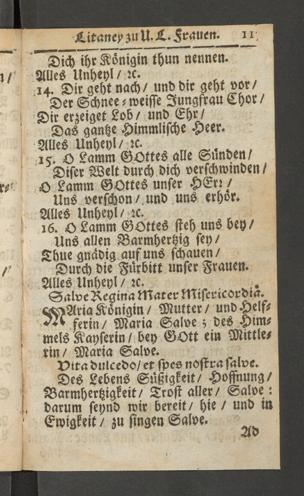 Litaney zu U. L. Frauen. 11
Dich ihr Königin thun nennen.
Alles Unheyl / ꝛc.
14. Dir geht nach / und dir geht vor /
Der Schnee-weisse Jungfrau Chor /
Dir erzeiget Lob / und Ehr /
Das gantze Himmlische Heer.
Alles Unheyl / ꝛc.
15. O Lamm GOttes alle Sünden /
Diser Welt durch dich verschwinden /
O Lamm GOttes unser HErr /
Uns verschon / und uns erhör.
Alles Unheyl / ꝛc.
16. O Lamm GOttes steh uns bey /
Uns allen Barmhertzig sey /
Thue gnädig auf uns schauen /
Durch die Fürbitt unser Frauen.
Alles Unheyl / ꝛc.
Salve Regina Mater Misericordiæ.
MAria Königin / Mutter / und Helf-
ferin / Maria Salve ; des Him-
mels Kayserin / bey GOtt ein Mittle-
rin / Maria Salve.
Vita dulcedo / et spes nostra salve.
Des Lebens Süßigkeit / Hoffnung /
Barmhertzigkeit / Trost aller / Salve :
darum seynd wir bereit / hie / und in
Ewigkeit / zu singen Salve.
Ad